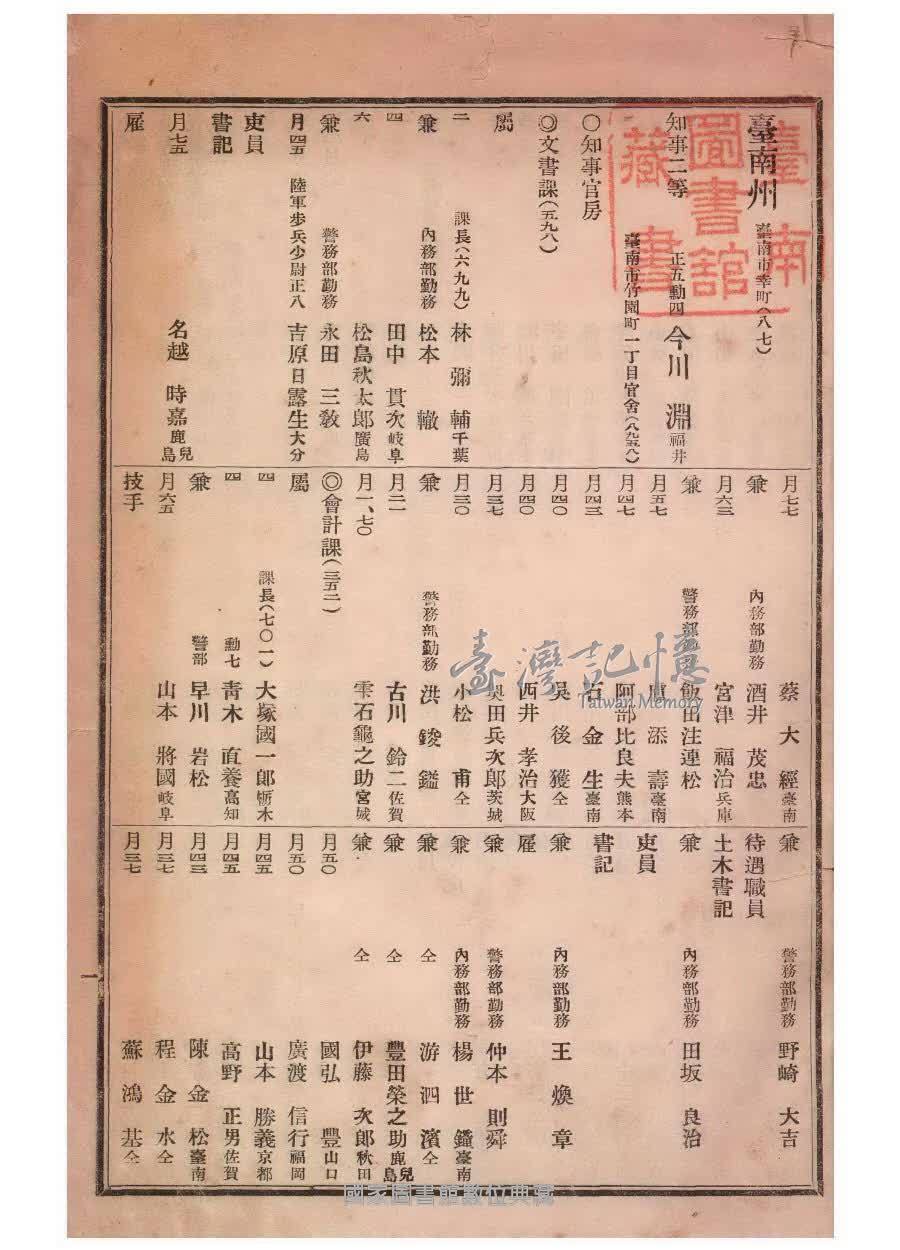 臺南州 臺南市幸町(八七)
知事二等 正五勳四 今川 淵 福井
臺南市竹園町一丁目官舍(八九五八)
〇知事官房
◎文書課(五九八)
屬
二 課長(六九九) 林 彌輔 千葉
兼 內務部勤務 松本 轍
四 田中 貫次 岐阜
六 松島秋太郎 廣島
兼 警務部勤務 永田 三敎
月四五 陸軍步兵少尉正八 吉原日露生 大分
吏員
書記
月七五 名越 時嘉 鹿兒島
雇
月七七 蔡大經 臺南
兼 內務部勤務 酒井 茂忠
月六三 宮津 福治 兵庫
兼 警務部勤務 飯田注連松
月五七 盧添壽 臺南
月四七 阿部比良夫 熊本
月四三 石金生 臺南
月四〇 吳後獲 仝
月四〇 西井 孝治 大阪
月三七 奧田兵次郎 茨城
月三〇 小松 甫 仝
兼 警務部勤務 洪鋑鎰
月二一 古川 鈴二 佐賀
月一、七〇 雫石龜之助 宮城
◎會計課(三五二)
屬
四 課長(七〇一) 大塚國一郎 栃木
四 勳七 靑木 直養 高知
兼 警部 早川 岩松
月六五 山本 將國 岐阜
技手
兼 警務部勤務 野崎 大吉
待遇職員
土木書記
兼 內務部勤務 田坂 良治
吏員
書記
兼 內務部勤務 王煥章
雇
兼 警務部勤務 仲本 則舜
兼 內務部勤務 楊世鐘 臺南
兼 仝 游泗濱 仝
兼 仝 豐田榮之助 鹿兒島
兼 仝 伊藤 次郎 秋田
月五〇 國弘 豐 山口
月五〇 廣渡 信行 福岡
月四五 山本 勝義 京都
月四五 高野 正男 佐賀
月四三 陳金松 臺南
月三七 程金水 仝
月三七 蘇鴻基 仝
一
臺南圖書館藏書
臺灣記憶
Taiwan Memory
國家圖書館數位典藏